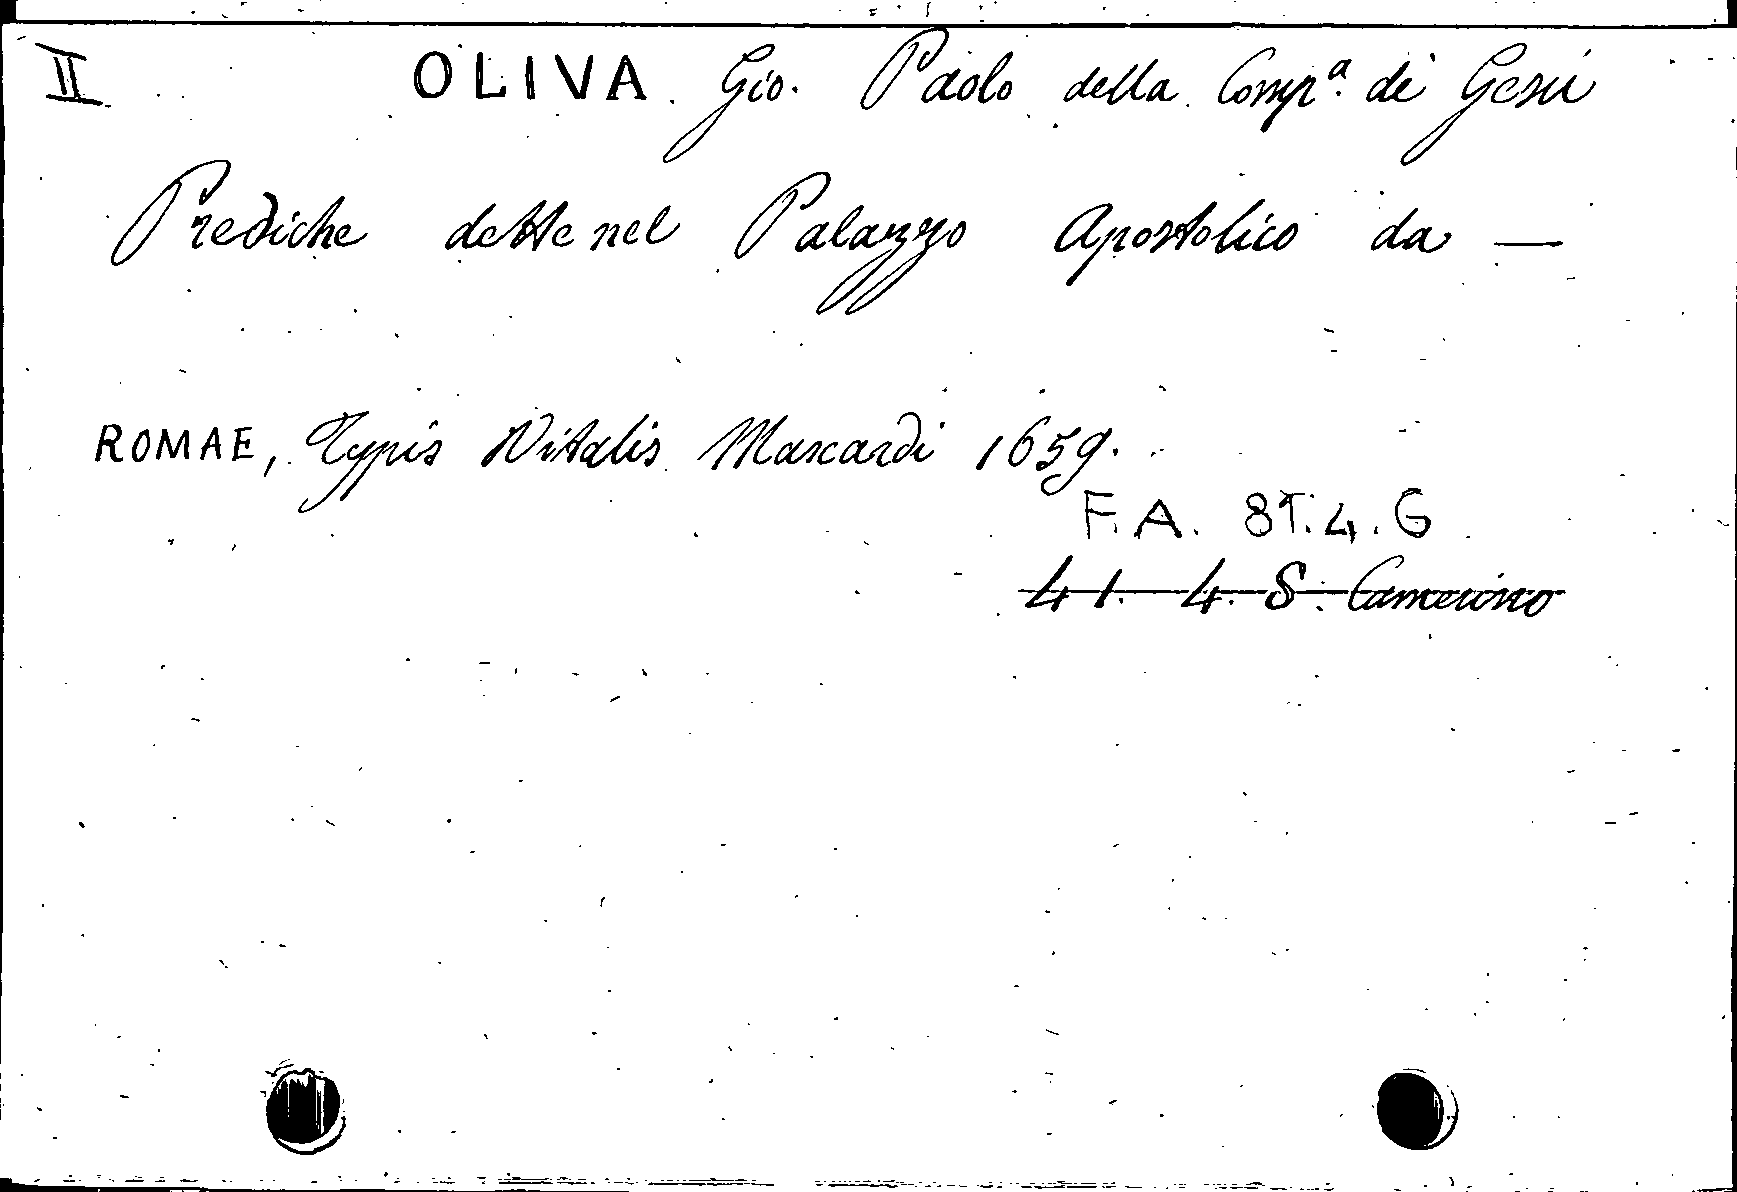 II OLIVA Gio. Paolo della Compª. di Gesù
Prediche dette nel Palazzo Apostolico da —
ROMAE, Typis Vitalis Mascardi 1659.
F.A. 8T.4.G
41. 4. S. Camerino